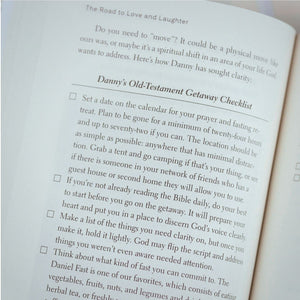 The Road to Love and Laughter
Do you need to “move”? It could be a physical move like
ours was, or maybe it’s a spiritual shift in an area of your life God
wants to address. Here’s how Danny has sought clarity:
Danny’s Old-Testament Getaway Checklist
☐ Set a date on the calendar for your prayer and fasting re-
treat. Plan to be gone for a minimum of twenty-four hours
and up to seventy-two if you can. The location should be
as simple as possible: anywhere that has minimal distrac-
tion. Grab a tent and go camping if that’s your thing, or see
if there is someone in your network of friends who has a
guest house or second home they will allow you to use.
☐ If you’re not already reading the Bible daily, do your best
to start before you go on the getaway. It will prepare your
heart and put you in a place to discern God’s voice clearly.
☐ Make a list of the things you need clarity on, but once you
make it, hold it lightly. God may flip the script and address
things you weren’t even aware needed attention.
☐ Think about what kind of fast you can commit to. The
Daniel Fast is one of our favorites, which consists of eating
vegetables, fruits, nuts, and legumes and
herbal tea, or